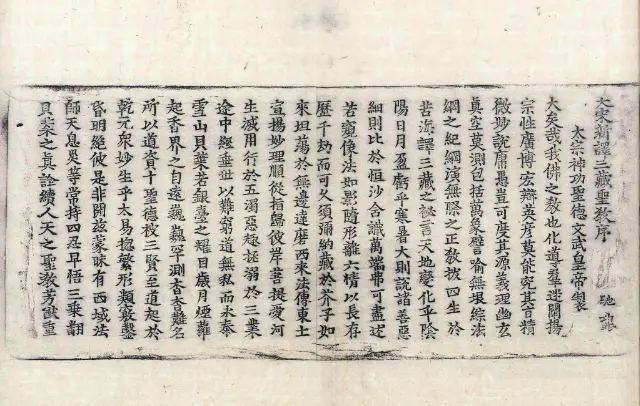 大宋新譯三藏聖教序
太宗神功聖德文武皇帝製
大矣哉我佛之教也化導羣迷闡揚
宗性廣博宏辯英彥莫能究其旨精
微妙說庸愚豈可度其源義理幽玄
真空莫測包括萬象譬喻無垠綜法
網之紀綱演無際之正教拔四生於
苦海譯三藏之秘言天地變化乎陰
陽日月盈虧乎寒暑大則說諸善惡
細則比於恒沙含識萬端弗可盡述
若窺像法如影隨形離六情以長存
歷千劫而可久須彌納藏於芥子如
來坦蕩於無邊達磨西來法傳東土
宣揚妙理順從指歸彼岸菩提愛河
生滅用行於五濁惡趣拯溺於三業
途中經垂世以難窮道無私而永泰
雪山貝葉若銀臺之耀目歲月煙蘿
起香界之自遠巍巍罕測杳杳難名
所以道資十聖德被三賢至道起於
乾元眾妙生乎太易揔繁形類竅鑿
昏明絕彼是非開茲蒙昧有西域法
師天息災等常持四忍早悟三乘翻
貝葉之真詮續人天之聖教芳猷重